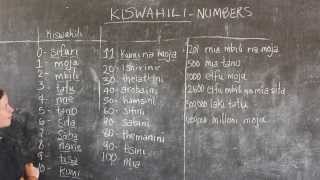 KISWAHILI - NUMBERS
Kiswahili
0- sifuri
1- moja
2- mbili
3- tatu
4- nne
5- tano
6- sita
7- Saba
8- nane
9- tisa
10- Kumi
11 Kumi na moja
20- Ishirini
30- thelathini
40- arobaini
50- hamsini
60- sitini
70- sabini
80- themanini
90- tisini
100- Mia
201 mia mbili na moja
500 mia tano
1000 elfu moja
elfu mbili na mia sita
laki tatu
milioni moja